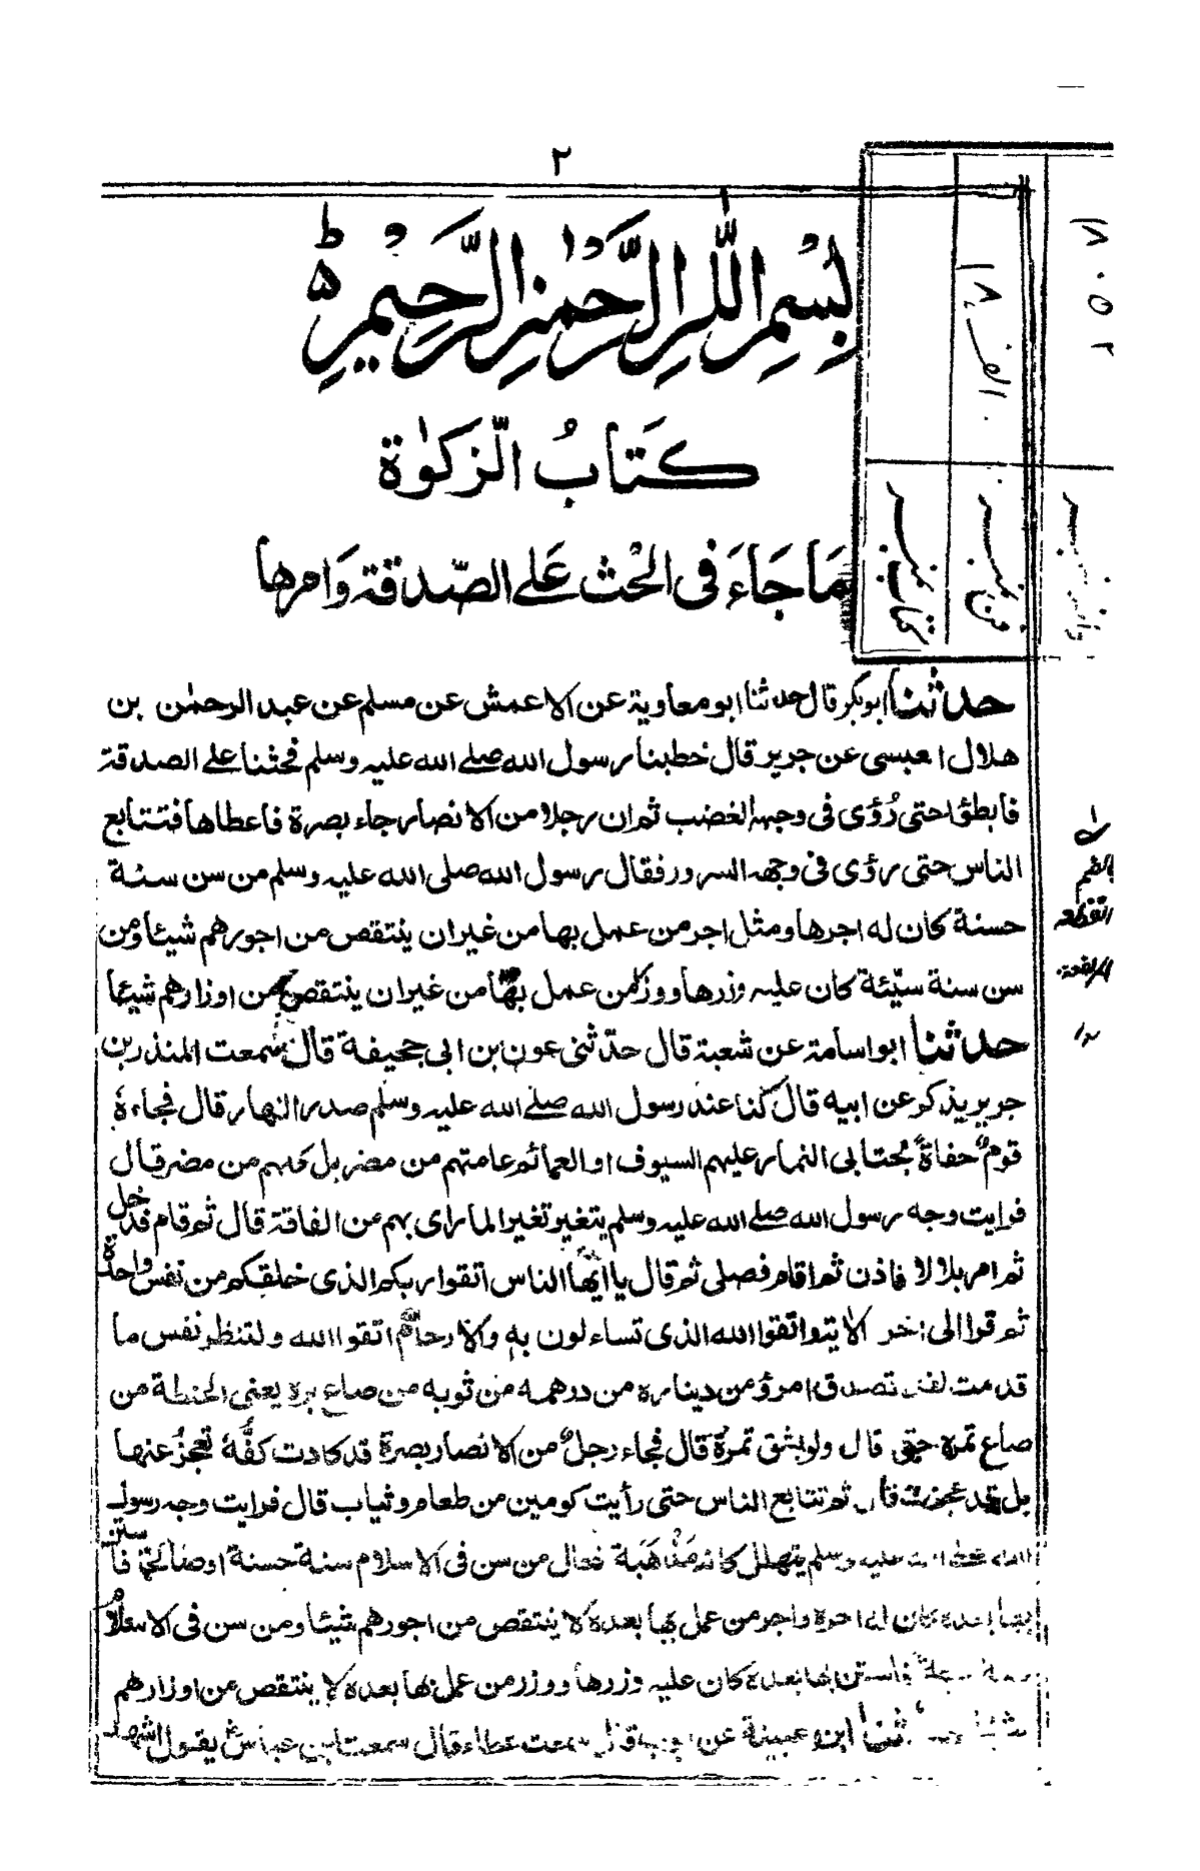 ٢
بِسْمِ اللّٰهِ الرَّحْمٰنِ الرَّحِيْمِ ط
كتابُ الزكوٰة
مَا جَاءَ فى الحْث عَلى الصّدقة وَامرها
حدثنا ابوبكر قال حدثنا ابومعاوية عن الاعمش عن مسلم عن عبد الرحمٰن بن
هلال العبسى عن جرير قال خطبنا رسول الله صلى الله عليه وسلم فحثنا على الصدقة
فابطؤا حتى رُؤى فى وجهه الغضب ثم ان رجلا من الانصار جاء بصرة فاعطاها فتتابع
الناس حتى رؤى فى وجهه السرور فقال رسول الله صلى الله عليه وسلم من سن سنة
حسنة كان له اجرها ومثل اجر من عمل بها من غير ان ينتقص من اجورهم شيئا ومن
سن سنة سيّئة كان عليه وزرها ووزر من عمل بها من غير ان ينتقص من اوزارهم شيئا
حدثنا ابواسامة عن شعبة قال حدّثنى عون بن ابى جحيفة قال سمعت المنذر بن
جرير يذكر عن ابيه قال كنا عند رسول الله صلى الله عليه وسلم صدر النهار قال فجاءهٗ
قومٌ حفاةٌ مُجتابى النمار عليهم السيوف او العمائم عامتهم من مضر بل كلهم من مضر قال
فرايت وجه رسول الله صلى الله عليه وسلم يتغير تغيرا لما راى بهم من الفاقة قال ثم قام فدخل
ثم امر بلالا فاذن ثم اقام فصلى ثم قال يا ايها الناس اتقوا ربكم الذى خلقكم من نفس واحدة
ثم قرا الى اخر الاية واتقوا الله الذى تساءلون بهٖ والارحام اتقوا الله ولتنظر نفس ما
قدمت لغد تصدق امرؤ من ديناره من درهمه من ثوبه من صاع بره يعنى الحنطة من
صاع تمره حتى قال ولو بشق تمرة قال فجاء رجلٌ من الانصار بصرة قد كادت كفُّهٗ تعجزُ عنها
بل قد عجزت قال ثم تتابع الناس حتى رأيت كومين من طعام وثياب قال فرايت وجه رسول
الله صلى الله عليه وسلم يتهلل كانه مَذْهَبة فقال من سن فى الاسلام سنة حسنة او صالحة فاستن
بها بعده كان له اجره واجر من عمل بها بعده لا ينتقص من اجورهم شيئا ومن سن فى الاسلام
فاستن بها بعده كان عليه وزرها ووزر من عمل بها بعده لا ينتقص من اوزارهم
ابن عيينة عن قال سمعت عطاء قال سمعت ابن عباس يقول اشهد
١٨٠٥٢
الف ١٨
فن نمبر
كتاب نمبر